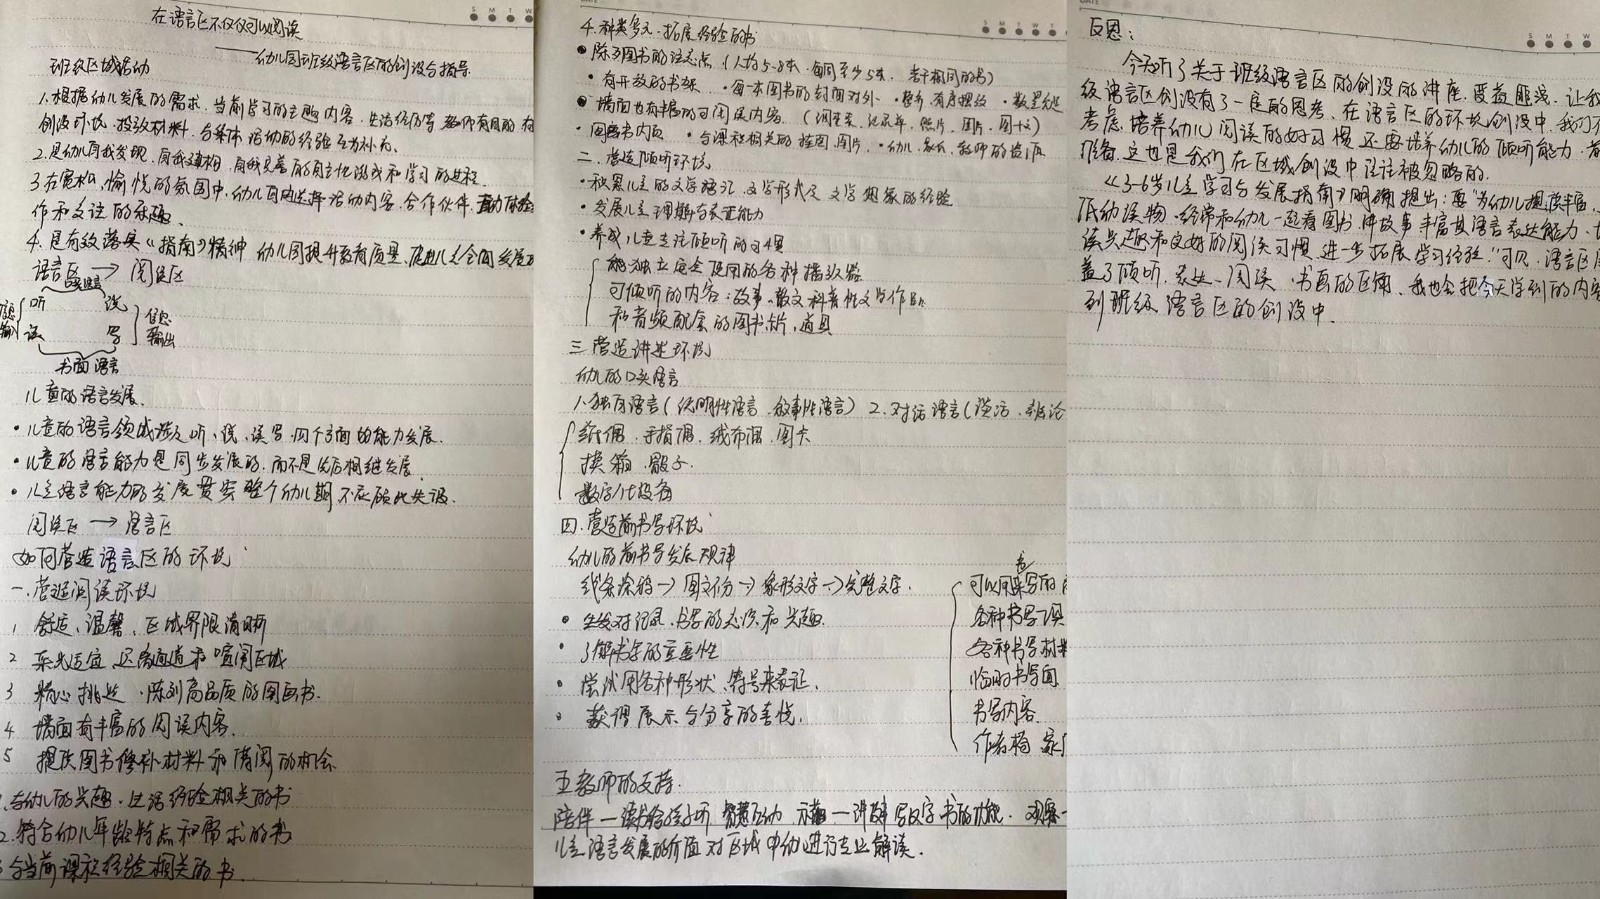 在语言区不仅仅可以阅读
——幼儿园班级语言区的创设与指导
班级区域活动
1.根据幼儿发展的需求、当前学习的主题内容、生活经历等 教师有目的 有
创设环境、投放材料,与集体活动的经验互为补充。
2.是幼儿自我发现、自我建构、自我完善的自主性游戏和学习的过程。
3.在宽松、愉悦的氛围中,幼儿自由选择活动内容、合作伙伴,
作和交往的乐趣
4.是有效落实《指南》精神 幼儿园提升教育质量,促进儿童全面发展
语言区 → 阅读区
听 说
读 写
信息输出
书面语言
儿童的语言发展
•儿童的语言领域涉及听、说、读写,四个方面的能力发展。
•儿童的语言能力是同步发展的,而不是先后相继发展
•儿童语言能力的发展贯穿整个幼儿期 不应顾此失彼。
阅读区 → 语言区
如何营造语言区的环境
一.营造阅读环境
1 舒适、温馨、区域界限清晰
2 采光适宜 远离通道和喧闹区域
3 精心挑选、陈列高品质的图画书.
4 墙面有丰富的阅读内容.
5 提供图书修补材料和借阅的机会
1.与幼儿的兴趣、生活经验相关的书
2.符合幼儿年龄特点和需求的书
3.与当前课程经验相关的书
4.种类多元、拓展经验的书
•陈列图书的注意点(人均5-8本、每周至少5本、若干相同的书)
•有开放的书架 •每一本图书的封面对外 •整齐 有序摆放 •数量充足
•墙面也有丰富的可阅读内容.(调查表、记录单、照片、图片、图书)
•图画书内页 •与课程相关的挂图 图片 •幼儿、家长、教师的
二.营造倾听环境.
•积累儿童的文学语汇、文学形式及文学想象的经验
•发展儿童理解与表征能力
•养成儿童专注倾听的习惯
能独立安全使用的各种播放器
可倾听的内容:故事、散文 科普性文学作品
和音频配套的图书卡片,道具
三 营造讲述环境
幼儿的口头语言
1.独白语言(说明性语言、叙事性语言) 2.对话语言(谈话、辩论
纸偶、手指偶、绒布偶、图卡
摸箱、骰子
数字化设备
四.营造前书写环境
幼儿的前书写发展规律
线条涂鸦→图文不分→象形文字→完整文字.
•生发对记录、书写的态度和兴趣.
•了解书写的重要性
•尝试用各种形状、符号来表征.
•获得展示与分享的喜悦.
可以用来写的
各种书写工具
各种书写材料
书写内容
五 教师的支持.
陪伴—读书给孩子听 示范—讲故事 写文字 书的功能. 观察—
儿童语言发展的价值 对区域中幼进行专业解读.
反思:
今天听了关于班级语言区的创设的讲座,受益匪浅.让我
级语言区创设有了一定的思考.在语言区的环境创设中,我们不
考虑培养幼儿阅读的好习惯 还要培养幼儿的倾听能力、前
准备.这也是我们在区域创设中往往被忽略的.
《3-6岁儿童学习与发展指南》明确提出:要“为幼儿提供丰富、
低幼读物.经常和幼儿一起看图书 讲故事 丰富其语言表达能力、
读兴趣和良好的阅读习惯 进一步拓展学习经验”可见,语言区
盖了倾听、表达、阅读、书画的区角.我也会把今天学到的内容
到班级语言区的创设中.